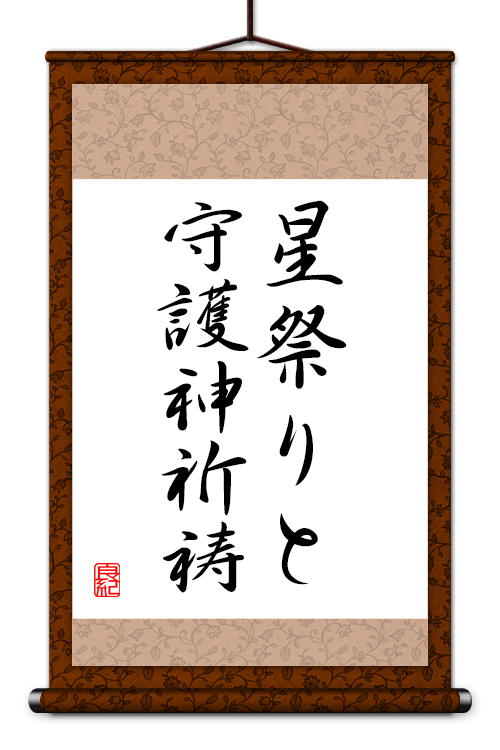 星祭りと
守護神祈祷
良紀